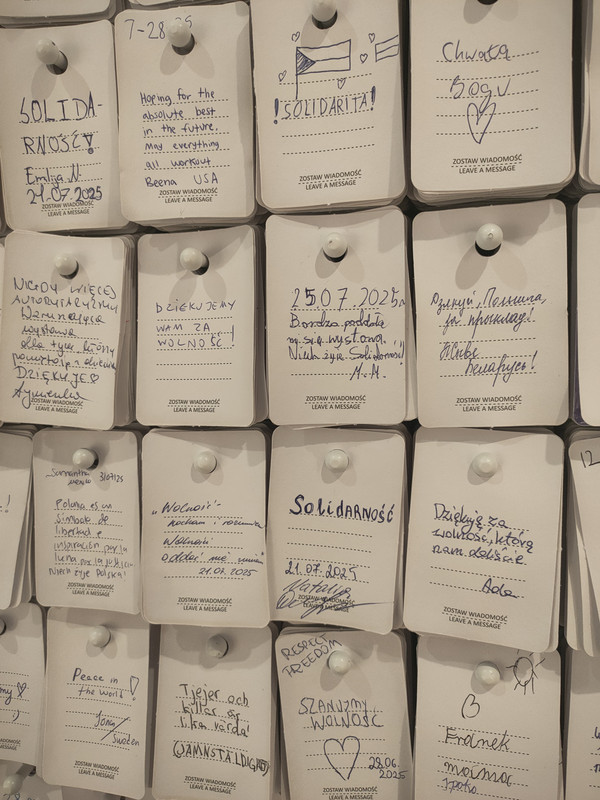 SOLIDA-
RNOŚĆ!
Emilia N.
21.07.2025
ZOSTAW WIADOMOŚĆ
LEAVE A MESSAGE
7-28-25
Hoping for the
absolute best
in the future.
May everything
all workout
Beena USA
ZOSTAW WIADOMOŚĆ
LEAVE A MESSAGE
!SOLIDARITA!
ZOSTAW WIADOMOŚĆ
LEAVE A MESSAGE
Chwała
Bogu
ZOSTAW WIADOMOŚĆ
LEAVE A MESSAGE
NIGDY WIĘCEJ
AUTORYTARYZMU
Wzruszająca
wystawa
dla tych, którzy
pamiętają i
DZIĘKUJĘ
ZOSTAW WIADOMOŚĆ
LEAVE A MESSAGE
DZIĘKUJEMY
WAM ZA
WOLNOŚĆ!
ZOSTAW WIADOMOŚĆ
LEAVE A MESSAGE
25.07.2025r
Bardzo podobała
mi się wystawa.
Niech żyje Solidarność!
M.M.
ZOSTAW WIADOMOŚĆ
LEAVE A MESSAGE
Дзякуй, Польшча,
за прыклад!
Жыве
Беларусь!
ZOSTAW WIADOMOŚĆ
LEAVE A MESSAGE
Samantha 31/07/25
Polonia es un
símbolo de
libertad e
inspiración por la
lucha por la justicia
Niech żyje Polska!
ZOSTAW WIADOMOŚĆ
LEAVE A MESSAGE
"Wolność -
kocham i rozumiem
Wolności
oddać nie umiem"
21.07.2025
ZOSTAW WIADOMOŚĆ
LEAVE A MESSAGE
SolidARNOŚĆ
21.07.2025
Natalia
ZOSTAW WIADOMOŚĆ
LEAVE A MESSAGE
Dziękuję za
wolność, którą
nam daliście
Ada
ZOSTAW WIADOMOŚĆ
LEAVE A MESSAGE
12
Peace in
the world!
Sweden
ZOSTAW WIADOMOŚĆ
LEAVE A MESSAGE
Tjejer och
killar är
lika värda!
(JÄMNSTÄLDIGHET)
ZOSTAW WIADOMOŚĆ
LEAVE A MESSAGE
RESPECT
FREEDOM
SZANUJMY
WOLNOŚĆ
28.06.
2025
ZOSTAW WIADOMOŚĆ
LEAVE A MESSAGE
ZOSTAW WIADOMOŚĆ
LEAVE A MESSAGE